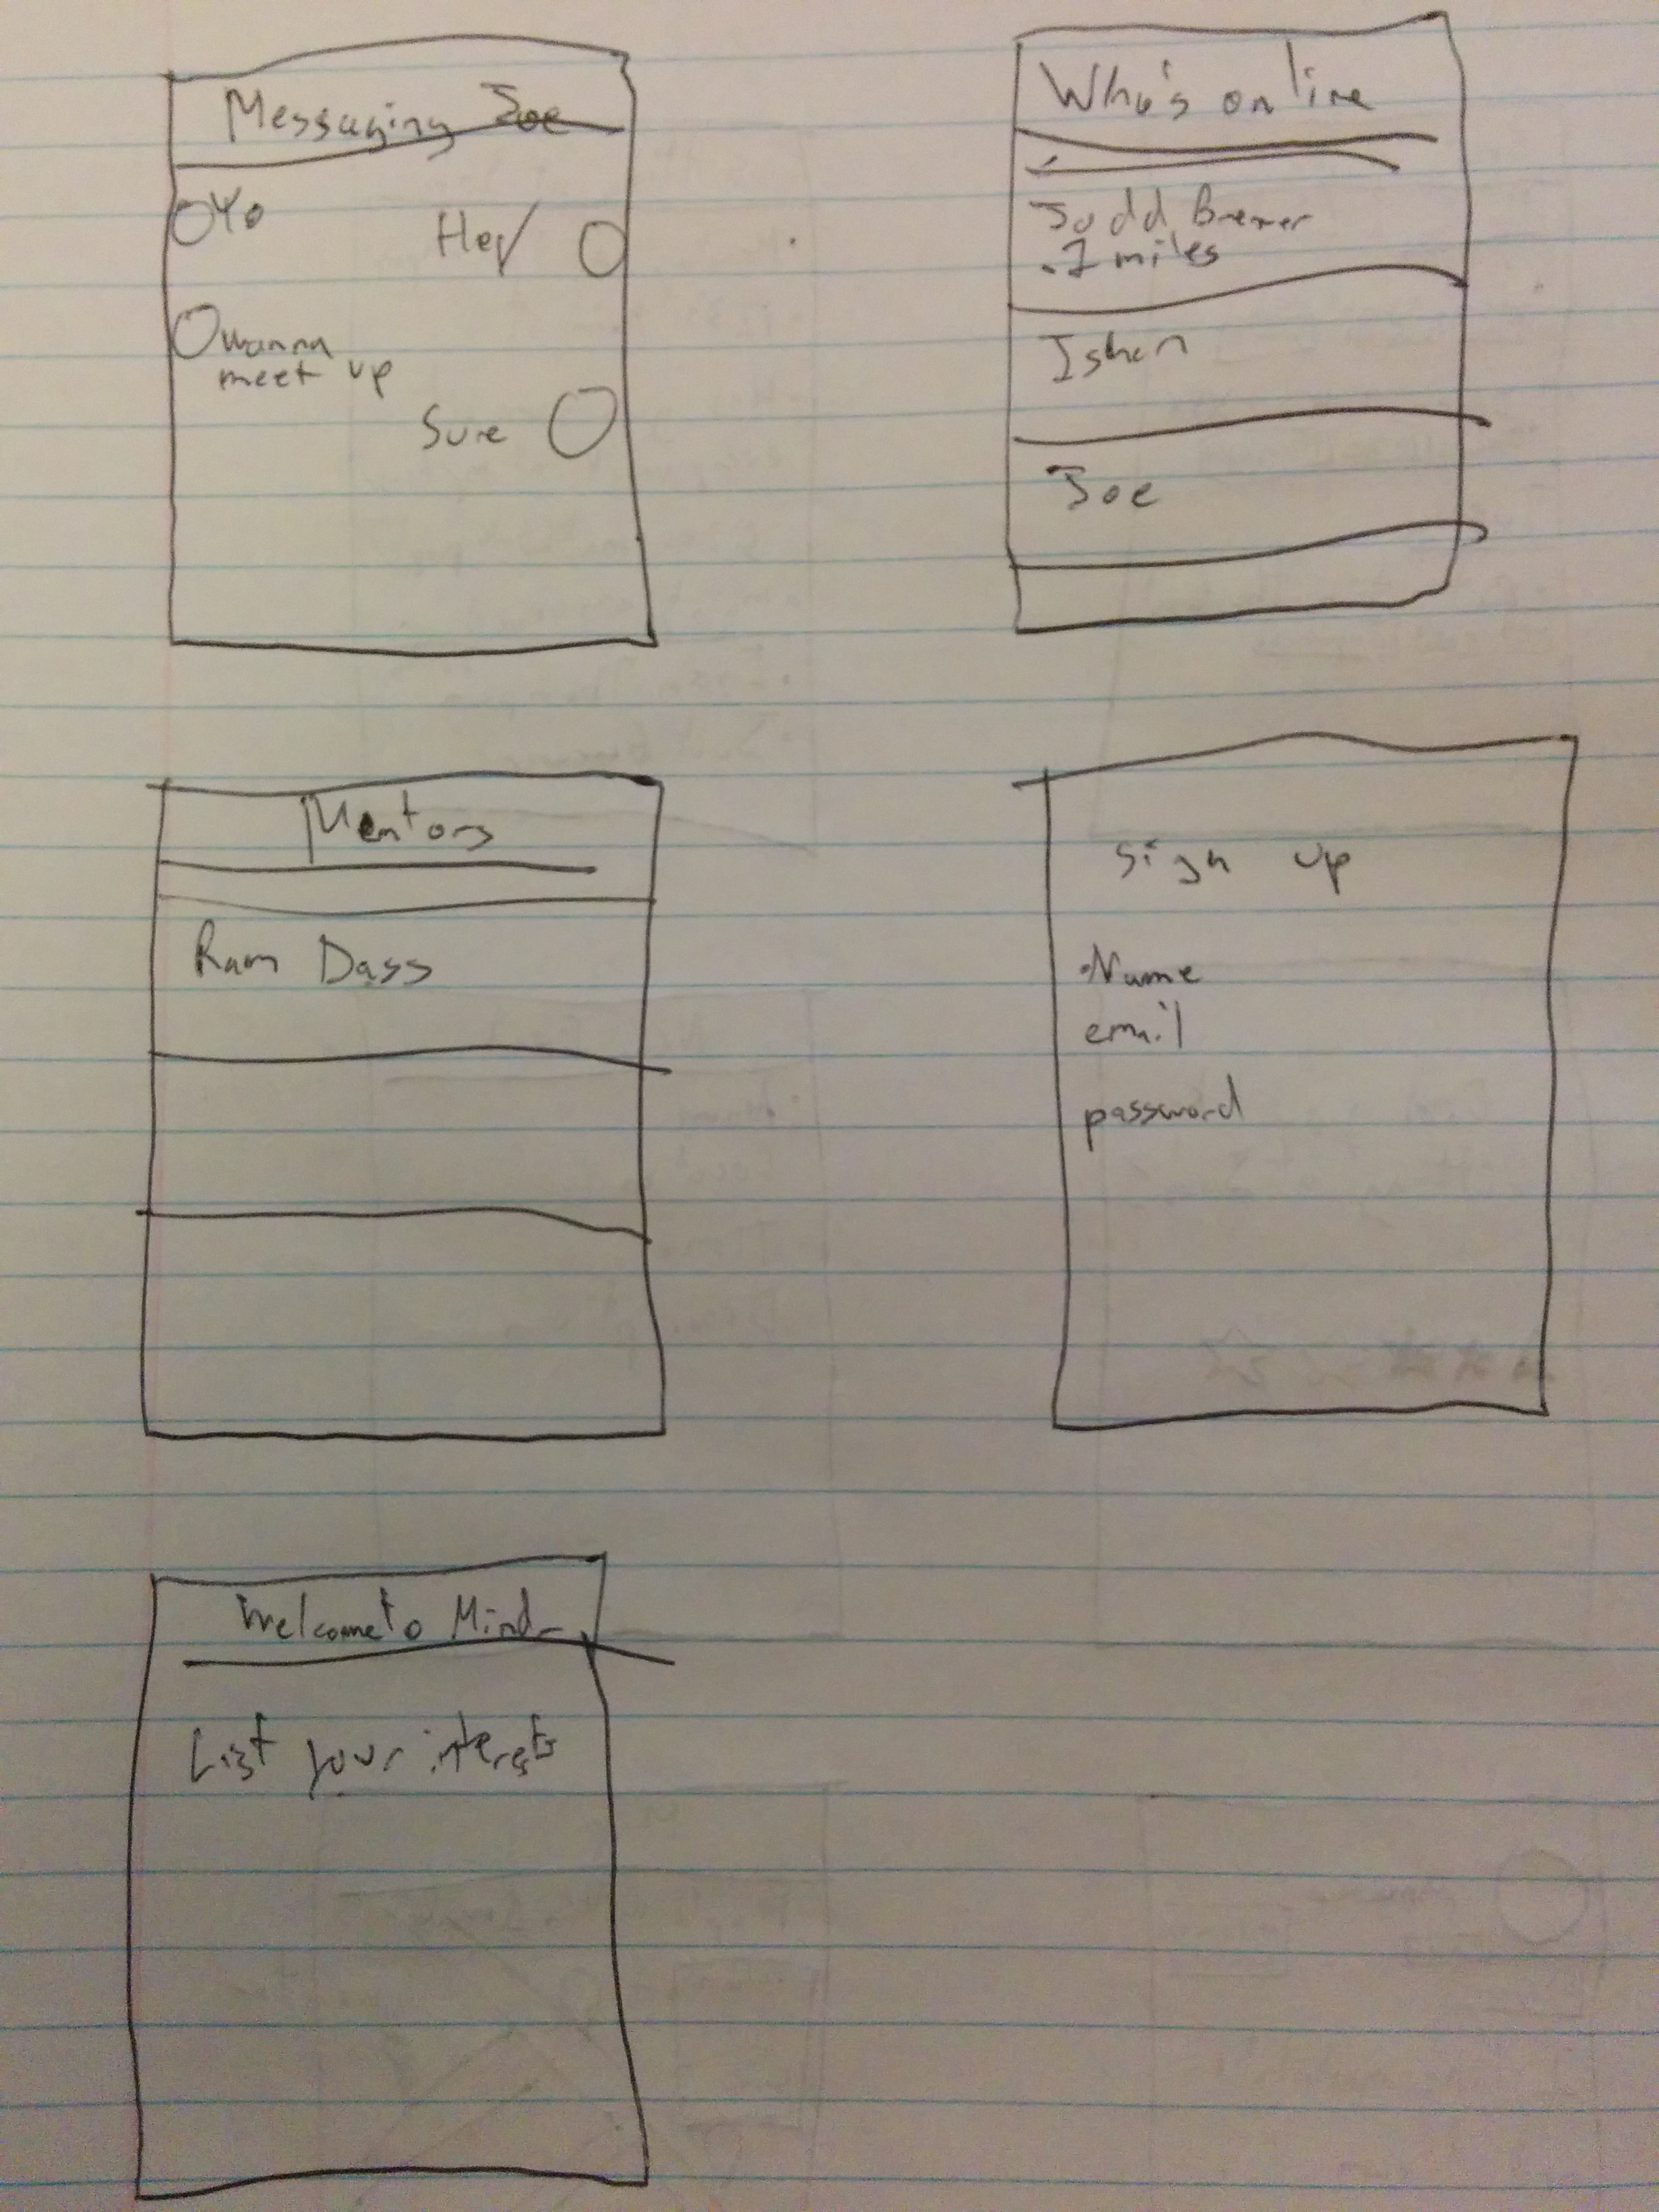 Messaging Joe
Yo
Hey
wanna
meet up
Sure
Who's online
Judd
miles
Ishan
Joe
Mentors
Ram Dass
Sign up
Name
email
password
Welcome to
List your interests